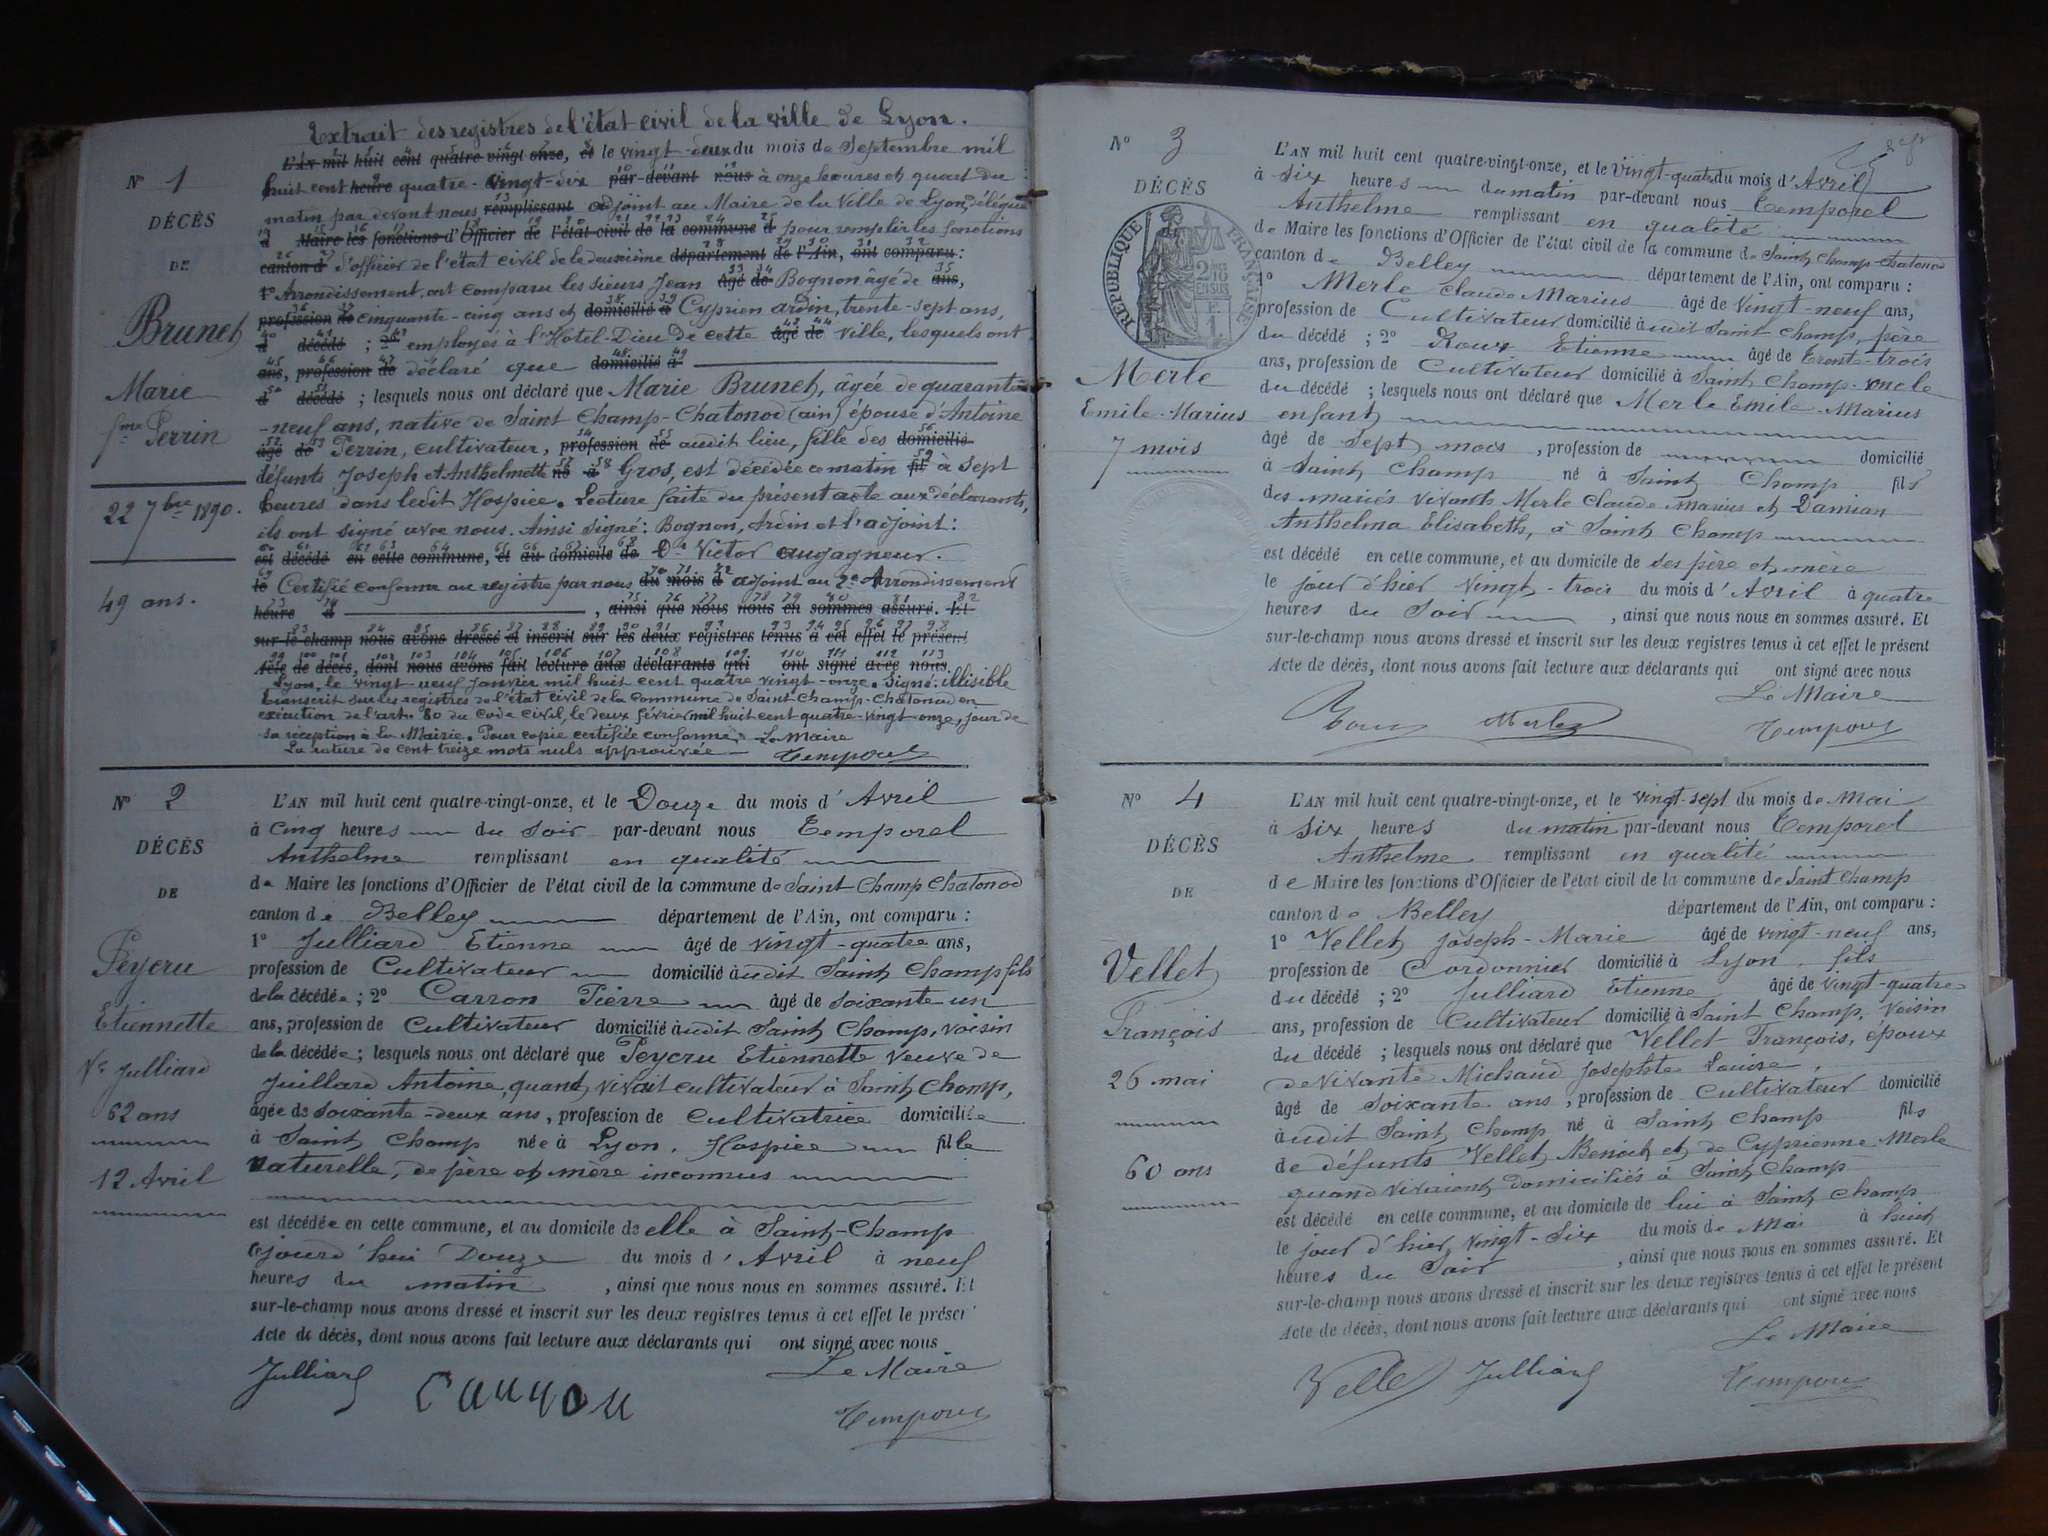 Extrait des registres de l'état civil de la ville de Lyon.
N° 1
DÉCÈS
DE
Brunet
Marie
fme Perrin
22 7bre 1890.
49 ans.
L'An mil huit cent quatre-vingt onze, et le vingt-deux du mois de Septembre mil
huit cent heure quatre-vingt-dix par-devant nous à onze heures et quart du
matin par devant nous remplissant adjoint au Maire de la Ville de Lyon, délégué
d Maire les fonctions d'Officier de l'état civil de la commune d pour remplir les fonctions
canton d d'officier de l'état civil de le deuxième département de l'Ain, ont comparu :
1° Arrondissement, ont comparu les sieurs Jean âgé de Bognon âgé de ans,
profession de cinquante-cinq ans et domicilié à Cyprien Ardin, trente-sept ans,
d décédé ; 2° employés à l'Hotel-Dieu de cette âgé de Ville, lesquels ont
ans, profession de déclaré que domicilié à
d décédé ; lesquels nous ont déclaré que Marie Brunet, âgée de quarante
-neuf ans, native de Saint Champ-Chatonod (ain) épouse d'Antoine
âgé de Perrin, cultivateur, profession de audit lieu, fille des domicilié
défunts Joseph et Anthelmette né à Gros, est décédée ce matin fil à sept
heures dans ledit Hospice. Lecture faite du présent acte aux déclarants,
ils ont signé avec nous. Ainsi signé : Bognon, Ardin et l'adjoint :
est décédé en cette commune, et au domicile de Dr Victor Augagneur.
le Certifié conforme au registre par nous du mois d adjoint au 2e Arrondissement
heure d , ainsi que nous nous en sommes assuré. Et
sur-le-champ nous avons dressé et inscrit sur les deux registres tenus à cet effet le présent
Acte de décès, dont nous avons fait lecture aux déclarants qui ont signé avec nous.
Lyon, le vingt-neuf Janvier mil huit cent quatre vingt-onze. Signé : illisible
Transcrit sur les registres de l'état civil de la Commune de Saint-Champ-Chatonod en
exécution de l'art. 80 du Code civil, le deux février mil huit cent quatre-vingt-onze, jour de
sa réception à la Mairie. Pour copie certifiée conforme. Le Maire
La rature de cent treize mots nuls approuvée Temporel
N° 2
DÉCÈS
DE
Peycru
Etiennette
Ve Julliard
62 ans
12 Avril
L'AN mil huit cent quatre-vingt-onze, et le Douze du mois d'Avril
à cinq heures du soir par-devant nous Temporel
Anthelme remplissant en qualité
de Maire les fonctions d'Officier de l'état civil de la commune de Saint Champ Chatonod
canton de Belley département de l'Ain, ont comparu :
1° Julliard Etienne âgé de vingt-quatre ans,
profession de Cultivateur domicilié àudit Saint Champ fils
de la décédée ; 2° Carron Pierre âgé de soixante un
ans, profession de Cultivateur domicilié àudit Saint Champ, voisin
de la décédée ; lesquels nous ont déclaré que Peycru Etiennette veuve de
Juillard Antoine, quand vivait cultivateur à Saint Champ,
âgée de soixante-deux ans, profession de Cultivatrice domiciliée
à Saint Champ née à Lyon. Hospice fille
naturelle, de père et mère inconnus
est décédée en cette commune, et au domicile de elle à Saint-Champ
cejourd'hui Douze du mois d'Avril à neuf
heures du matin , ainsi que nous nous en sommes assuré. Et
sur-le-champ nous avons dressé et inscrit sur les deux registres tenus à cet effet le présent
Acte de décès, dont nous avons fait lecture aux déclarants qui ont signé avec nous
Le Maire
Julliard Carron Temporel
N° 3
DÉCÈS
RÉPUBLIQUE FRANÇAISE
Merle
Emile-Marius
7 mois
L'AN mil huit cent quatre-vingt-onze, et le vingt-quatre du mois d'Avril
à six heures du matin par-devant nous Temporel
Anthelme remplissant en qualité
de Maire les fonctions d'Officier de l'état civil de la commune de Saint Champ-Chatonod
canton de Belley département de l'Ain, ont comparu :
1° Merle Claude Marius âgé de vingt-neuf ans,
profession de Cultivateur domicilié àudit Saint Champ, père
du décédé ; 2° Roux Etienne âgé de trente-trois
ans, profession de Cultivateur domicilié à Saint Champ-oncle
du décédé ; lesquels nous ont déclaré que Merle Emile-Marius
enfant
âgé de sept mois , profession de domicilié
à Saint Champ né à Saint Champ fils
des mariés vivants Merle Claude marius et Damian
Anthelma Elisabeth, à Saint Champ
est décédé en cette commune, et au domicile de ses père et mère
le jour d'hier vingt-trois du mois d'Avril à quatre
heures du Soir , ainsi que nous nous en sommes assuré. Et
sur-le-champ nous avons dressé et inscrit sur les deux registres tenus à cet effet le présent
Acte de décès, dont nous avons fait lecture aux déclarants qui ont signé avec nous
Le Maire
Roux Merle Temporel
N° 4
DÉCÈS
DE
Vellet
François
26 mai
60 ans
L'AN mil huit cent quatre-vingt-onze, et le vingt-sept du mois de Mai
à six heures du matin par-devant nous Temporel
Anthelme remplissant en qualité
de Maire les fonctions d'Officier de l'état civil de la commune de Saint Champ
canton de Belley département de l'Ain, ont comparu :
1° Vellet Joseph-Marie âgé de vingt-neuf ans,
profession de Cordonnier domicilié à Lyon, fils
du décédé ; 2° Julliard Etienne âgé de vingt-quatre
ans, profession de Cultivateur domicilié à Saint Champ, Voisin
du décédé ; lesquels nous ont déclaré que Vellet François, époux
de vivante Michaud Josephte Louise,
âgé de soixante ans , profession de Cultivateur domicilié
àudit Saint Champ né à Saint Champ fils
de défunts Vellet Benoit et de Cyprienne Merle
quand vivaient domiciliés à Saint Champ
est décédé en cette commune, et au domicile de lui à Saint Champ
le jour d'hier vingt-six du mois de Mai à huit
heures du Soir , ainsi que nous nous en sommes assuré. Et
sur-le-champ nous avons dressé et inscrit sur les deux registres tenus à cet effet le présent
Acte de décès, dont nous avons fait lecture aux déclarants qui ont signé avec nous
Le Maire
Vellet Julliard Temporel